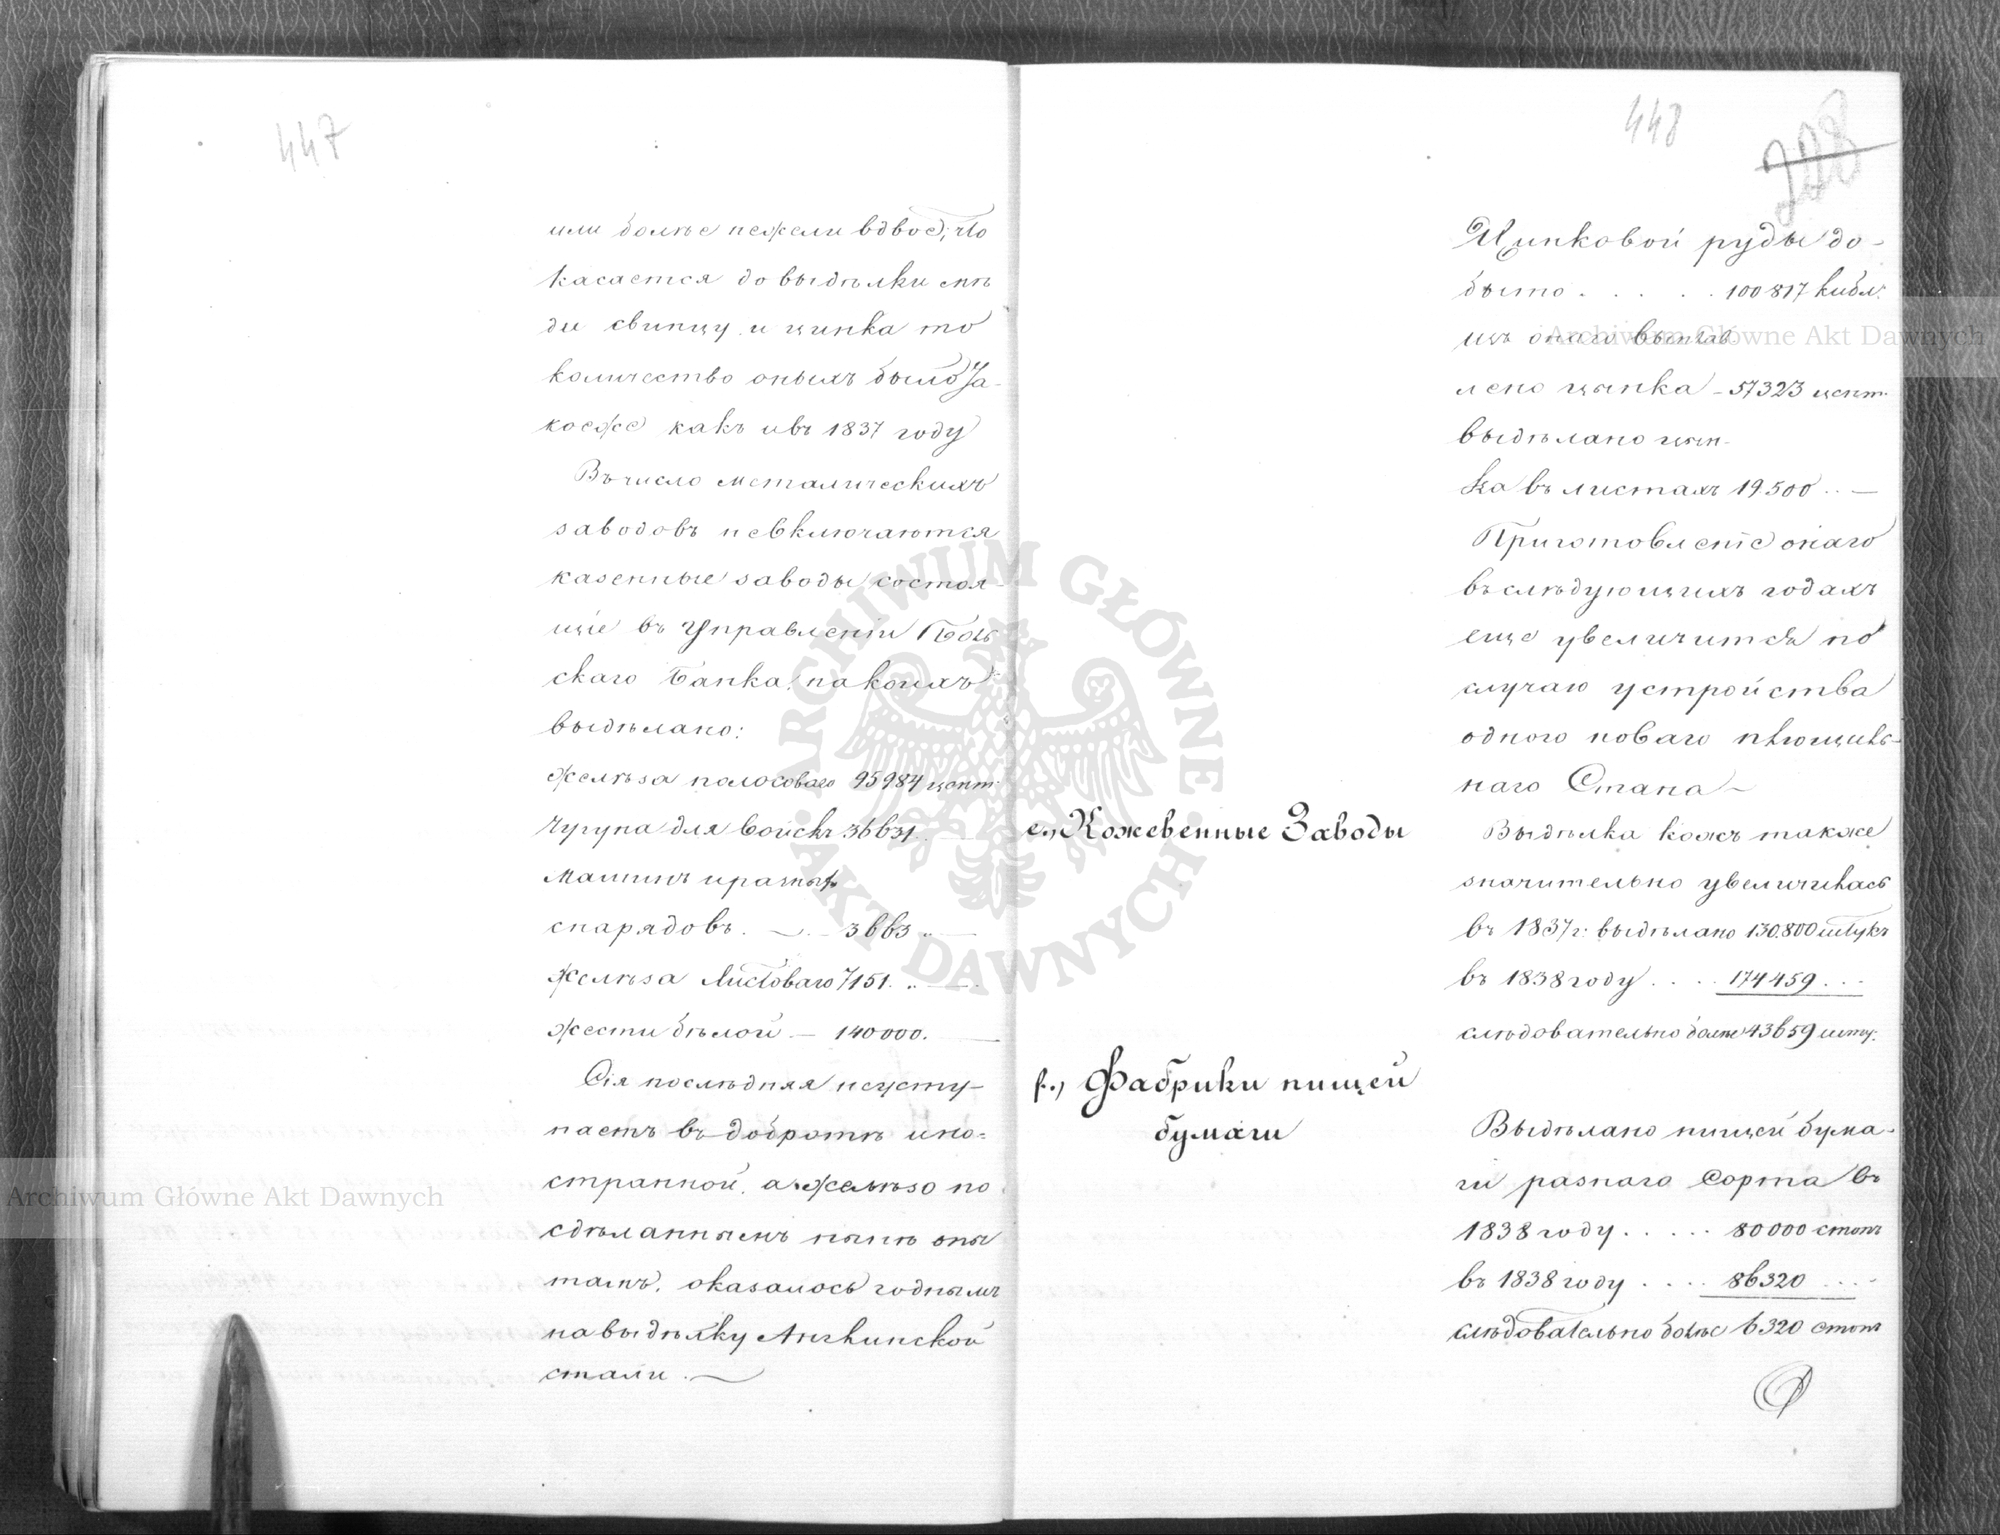 447
или болѣе нежели вдвое; что
касается до выдѣлки мѣ
ди свинцу и цинка то
количество оныхъ было та-
коеже какъ ивъ 1837 году
Въ число металическихъ
заводовъ невключаются
казенные заводы состоя-
щіе въ Управленіи Поль
скаго Банка, на коихъ
выдѣлано:
желѣза полосоваго 95984 цент.
Чугуна для 36631 .. —
Машинъ и разных
снарядовъ. — .. — 3663 .. —
желѣза Листоваго 7151. .. —
жести бѣлой — 140000. —
Сія послѣдняя неусту-
паетъ въ добротѣ ино-
странной, а желѣзо по
сдѣланнымъ нынѣ опы
тамъ, оказалось годнымъ
на выдѣлку Англинской
стали. —
448
228
Цинковой руды до-
быто . . . . . 100817 кибл.
изъ онаго выплав-
лено цынка - 57323 цент.
выдѣлано цын-
ка въ листахъ 19.500 .. —
Приготовленіе онаго
въ слѣдующихъ годахъ
еще увеличится по
случаю устройства
одного новаго плющиль-
наго Стана —
е., Кожевенные Заводы
Выдѣлка кожъ также
значительно увеличилась
въ 1837 г: выдѣлано 130.800 штукъ
въ 1838 году . . . . 174459 . . .
слѣдовательно болѣе 43659 шту:
f., Фабрики пищей
бумаги
Выдѣлано пищей бума-
ги разнаго Сорта въ
1838 году . . . . . 80000 стопъ
въ 1838 году . . . . 86320 . . . .
слѣдовательно болѣе 6320 стопъ
Archiwum Główne Akt Dawnych
Archiwum Główne Akt Dawnych
ARCHIWUM GŁÓWNE · AKT DAWNYCH ·